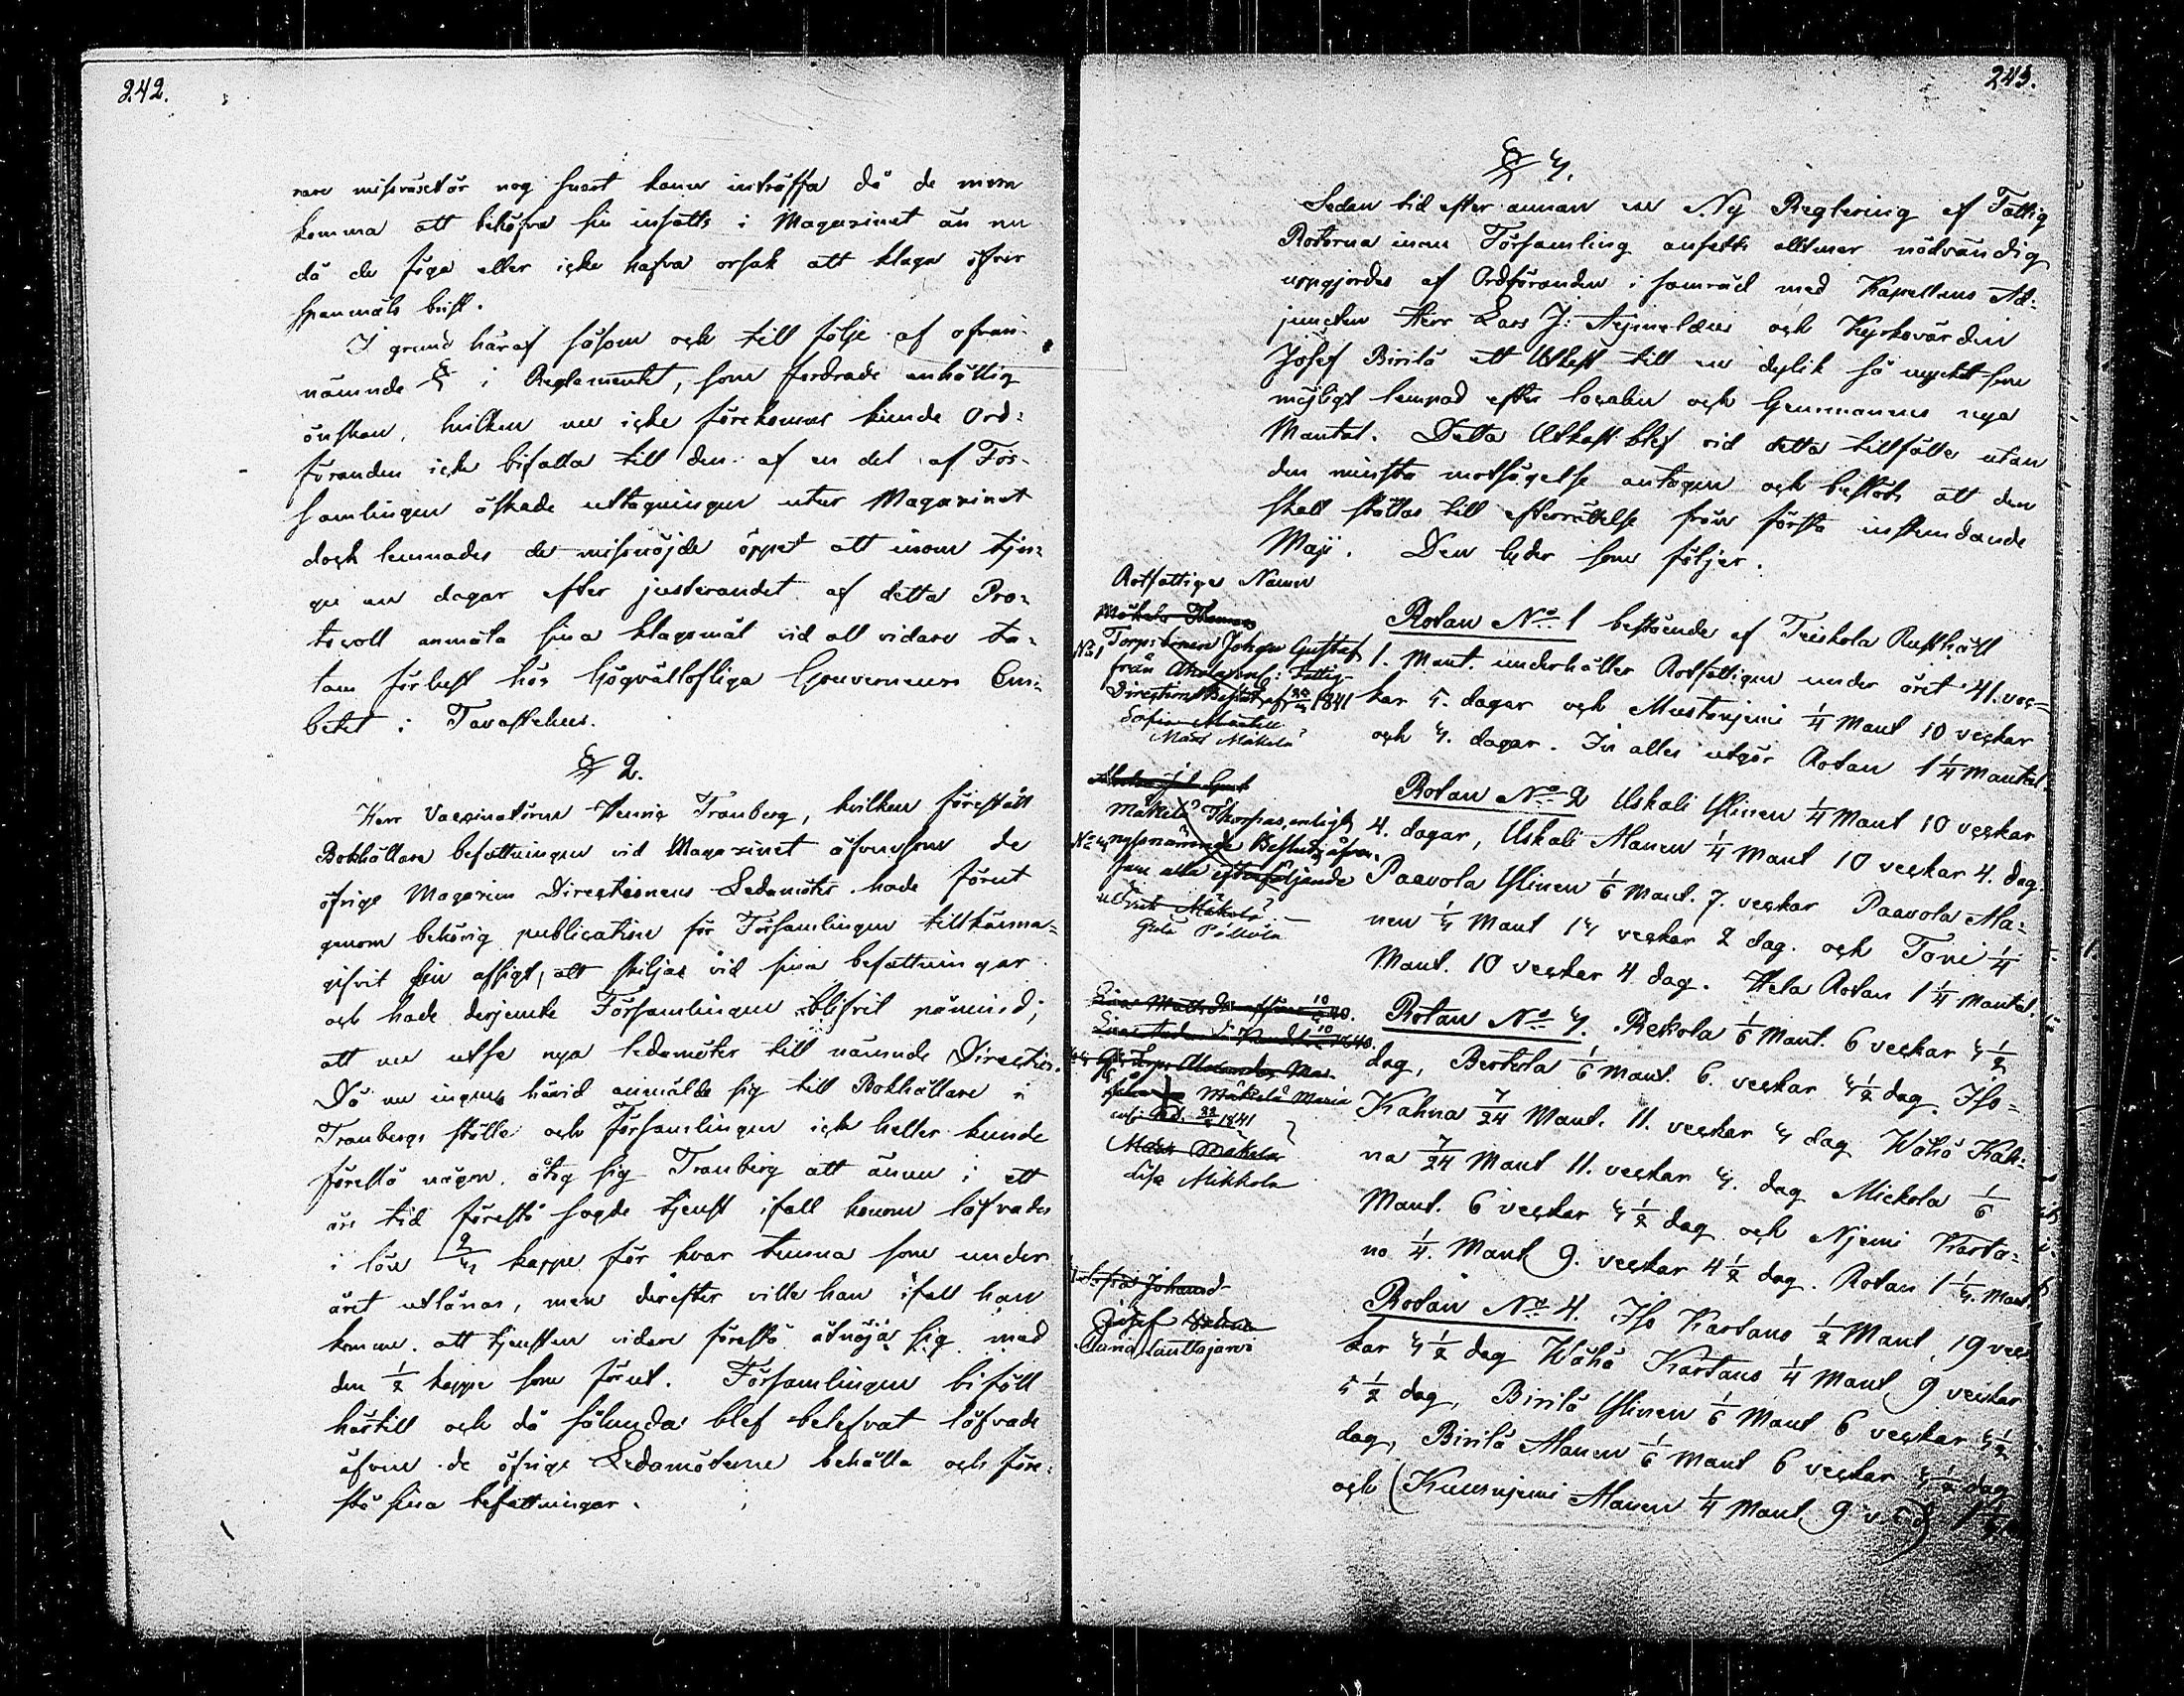 242.
rare missväxtår nog snart kann inträffa då de mera
komma att behöfva sin insatts i Magasinet än nu
då de föga eller icke hafva orsak att klaga öfver
spanmåls brist.
I grund häraf såsom och till följe af ofvan-
nämnde § i Reglamentet, som fordrade enhällig
önskan, hvilken nu icke förekommer kunde Ord-
föranden icke bifalla till den af en del af För-
samlingen åskade uttagningen utur Magasinet
dock lemnades de missnöjde öppet att inom tju-
gu en dagar efter justerandet af detta Pro-
tocoll anmäla sina klagomål vid all vidare ta-
lans förlust hos Högvällofliga Gouverneurs Em-
betet i Tavastehus.
§ 2.
Herr Vaccinatoren Henric Tranberg, hvilken förestått
Bokhållare befattningen vid Magasinet äfvensom de
öfrige Magasins Directionens Ledamöter hade förut
genom behörig publication för Församlingen tillkänna-
gifvit sin afsigt, att skiljas vid sina befattningar
och hade derjemte Församlingen blifvit påmind,
att nu utse nya ledamöter till nämnde Direction.
Då nu ingen härvid anmälde sig till Bokhållare i
Tranbergs ställe och Församlingen icke heller kunde
föreslå någon, åtog sig Tranberg att ännu i ett
års tid förestå sagde tjenst ifall honom löfvades
i lön 2/3 kappe för hvar tunna som under
året utlånas, men derefter ville han ifall han
komme att tjensten vidare förestå åtnöja sig med
den 1/2 kappe som förut. Församlingen biföll
härtill och då sålunda blef belefvat löfvade
äfven de öfrige Ledamöterne behålla och före-
stå sina befattningar.
243.
§ 3.
Sedan tid efter annan en Ny Reglering af Fattig
Rotorna inom Församling ansetts alltmer nödvändig
uppgjordes af Ordföranden i samråd med Kapellans Ad-
juncten Herr Lars J: Aejmelæus och Kyrkovärden
Josef Birilä ett Utkast till en dylik så mycket som
möjligt lempad efter localen och Hemmanens nya
Mantal. Detta Utkast blef vid detta tillfälle utan
den minsta motsägelse antagen och beslöts att den
skall ställas till efterrättelse från första instundande
Maji. Den lyder som följer.
Rotfattiges Namn
Mäkelä Thomas
No 1 Torps sonen Johan Gustaf
från Ahola enl: Fattig-
Directions Beslut af 1841
Sofia
Mats Mäkelä
Rotan No 1 bestående af Teiskola Rusthåll
1. Mant. underhåller Rotfattigen under året 41. vec-
kar 5. dagar och Mustanjemi 1/4 Mant 10 veckar
och 3. dagar. In alles utgör Rotan 1 1/4 Mantal.
Mäkelä Thomas, enligt
nyssnämnde Beslut äfven-
som alla efterföljande
Mäkelä
Greta Pöllölä
Rotan No 2 Uskali Ylinen 1/4 Mant 10 veckar
4. dagar, Uskali Alanen 1/4 Mant 10 veckar 4. dag.
Paavola Ylinen 1/6 Mant. 7. veckar Paavola Ala-
nen 1/3 Mant 13 veckar 2 dag. och Toni 1/4
Mant. 10 veckar 4 dag. Hela Rotan 1 1/4 Mantal.
Mäkelä Maria
1841
Mats Mäkelä
Lisa Mikkola
Rotan No 3. Rekola 1/6 Mant. 6 veckar 3 1/2
dag, Berttula 1/6 Mant. 6. veckar 3 1/2 dag. Iso-
Kahna 7/24 Mant. 11. veckar 3 dag Wähä Kah-
na 7/24 Mant 11. veckar 3. dag Mickola 1/6
Mant. 6 veckar 3 1/2 dag och Njemi Karta-
no 1/4. Mant 9. veckar 4 1/2 dag. Rotan 1 1/3. Mant.
Johansd
Josef
Maria Lauttajärvi
Rotan No 4. Iso Kartano 1/2 Mant, 19 vec-
kar 3 1/2 dag Wähä Kartano 1/4 Mant 9 veckar
5 1/2 dag, Birilä Ylinen 1/6 Mant 6 veckar 3 1/2
dag, Birilä Alanen 1/6 Mant 6 veckar 3 1/2 dag
och (Kuusnjemi Alanen 1/4 Mant 9 v.